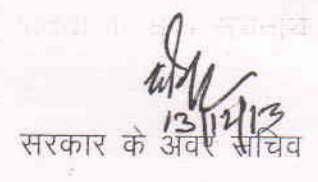 13/12/13
सरकार के अवर सचिव